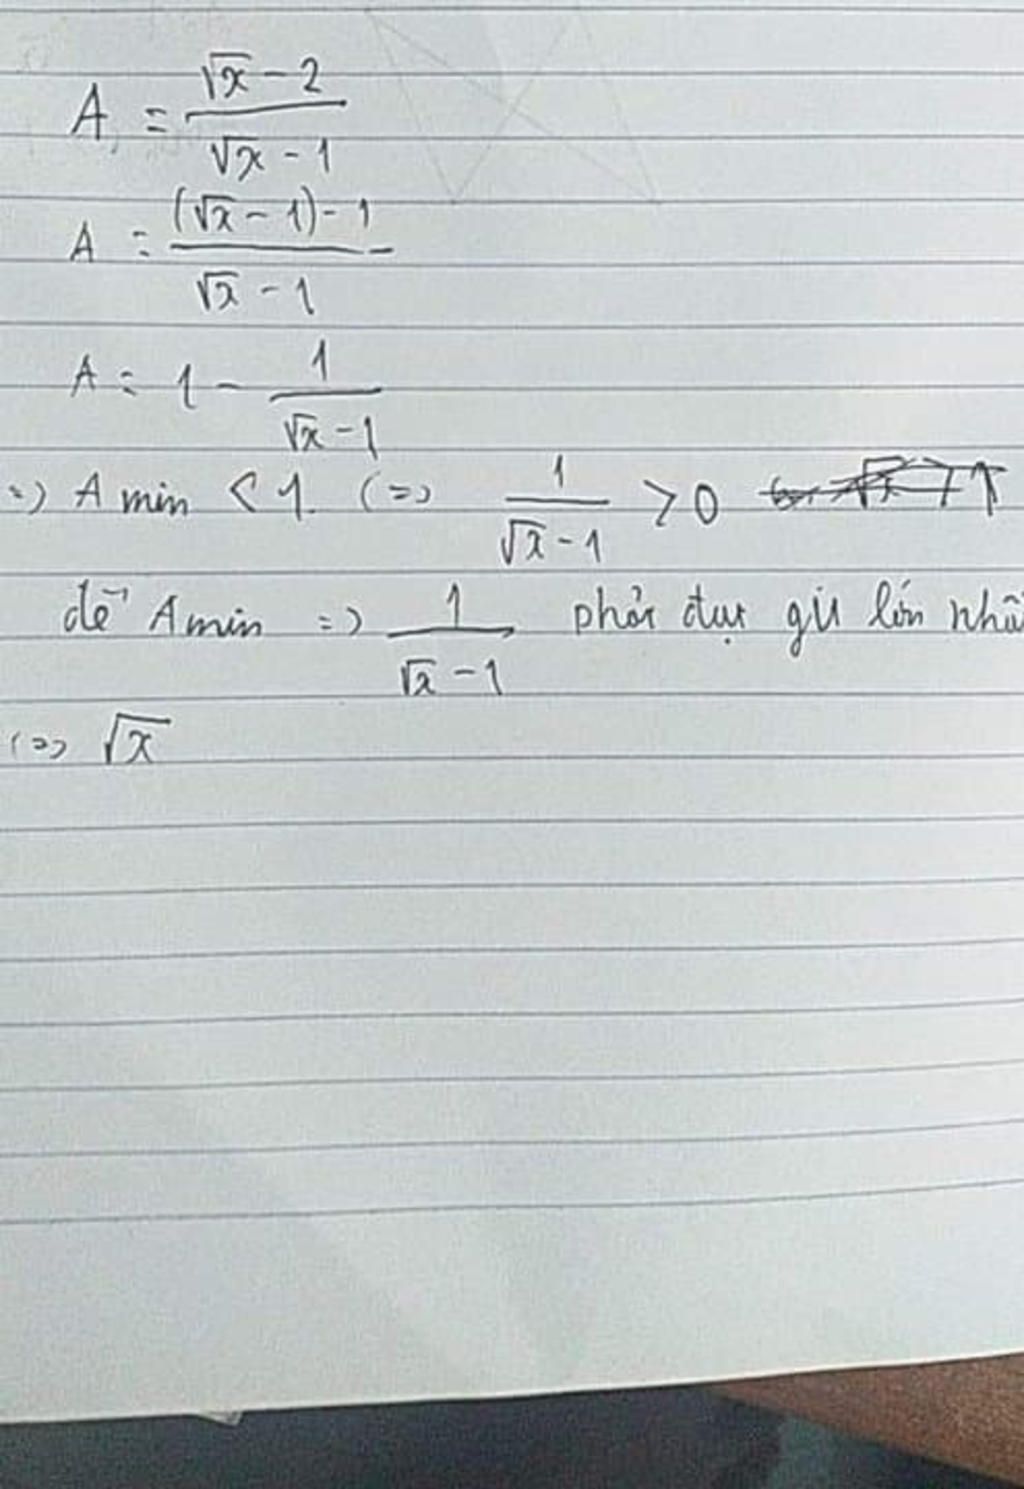 A = (√x - 2)/(√x - 1)
A = ((√x - 1) - 1)/(√x - 1)
A = 1 - 1/(√x - 1)
=) A min < 1. (=) 1/(√x - 1) > 0
để A min =) 1/(√x - 1) phải đạt gtr lớn nhấ
(=) √x